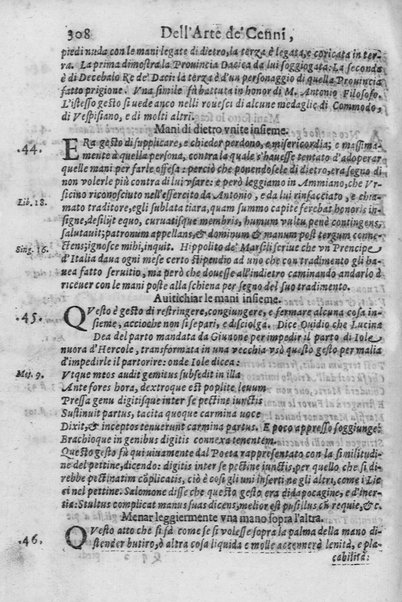 308 Dell'Arte de' Cenni,
piedi nuda con le mani legate di dietro, la terza è legata, e coricata in ter-
ra. La prima dimostra la Prouincia Dacica da lui soggiogata: La seconda
è di Decebalo Re de' Daci: la terza è d'un personaggio di quella Prouincia
fatto prigione. Vna simile fù battuta in honor di M. Antonio Filosofo.
L'istesso gesto si vede anco nelli rouesci di alcune medaglie di Commodo,
di Vespasiano, e di molti altri.
Mani di dietro vnite insieme.
.44. ERa gesto di supplicare, e chieder perdono, e misericordia; e massima-
mente à quella persona, contra la quale s'hauesse tentato d'adoperar
quelle mani per farle offesa: perciò che ponendosele di dietro, era segno di
non volerle più contra di lui vsare: e però leggiamo in Ammiano, che Vr-
Lib. 18. sicino riconosciuto nell'essercito da Antonio, e da lui rinfacciato, e chia-
mato traditore, egli sublata tiara, quam summo capiti ferebat honoris in-
signe, desilijt equo, curuatisque membris, humum vultu penè contingens,
salutauit; patronum appellans, & dominum & manus post tergum conne-
Sing. 16. ctens; ignosce mihi, inquit. Hippolito de' Marsilij scriue che vn Prencipe
d'Italia daua ogni mese certo stipendio ad vno che con tradimento gli ha-
uea fatto seruitio, ma però che douesse all'indietro caminando andarlo à
riceuer con le mani poste alla schiena per segno del suo tradimento.
Auitichiar le mani insieme.
.45. QVesto è gesto di restringere, congiungere, e fermare alcuna cosa in-
sieme, accioche non si separi, e disciolga. Dice Ouidio che Lucina
Dea del parto mandata da Giunone per impedir il parto di Iole
nuora d'Hercole, transformata in una vecchia vsò questo gesto per malia
d'impedirle il partorire: onde Iole dicea:
Met. 9. Vtque meos audit gemitus subsedit in illa
Ante fores hora, dextroque est poplite leuum
Pressa genu digitisque inter se pectine iunctis
Sustinuit partus, tacita quoque carmina uoce
Dixit, & inceptos tenuerunt carmina partus. E poco appresso soggiunge:
Brachioque in genibus digitis connexa tenentem.
Questo gesto fù quì viuamente dal Poeta rappresentato con la similitudi-
ne del pettine, dicendo: digitis inter se pectine iunctis, per quello che si di-
rebbe pectinatim cōplicatis, ciò è così gli uni inserti ne gli altri, come i Lic
ei nel pettine. Salomone disse che questo gesto era di dapocagine, e d'iner-
tia: Stultus complicat manus suas dicens; melior est pusillus cū requie, &c.
Menar leggiermente vna mano sopra l'altra.
.46. QVesto atto che si fà come se si volesse sopra la palma della mano di-
stender butiro, ò altra cosa liquida e molle accennerà lenità, e pla-
cabilità: